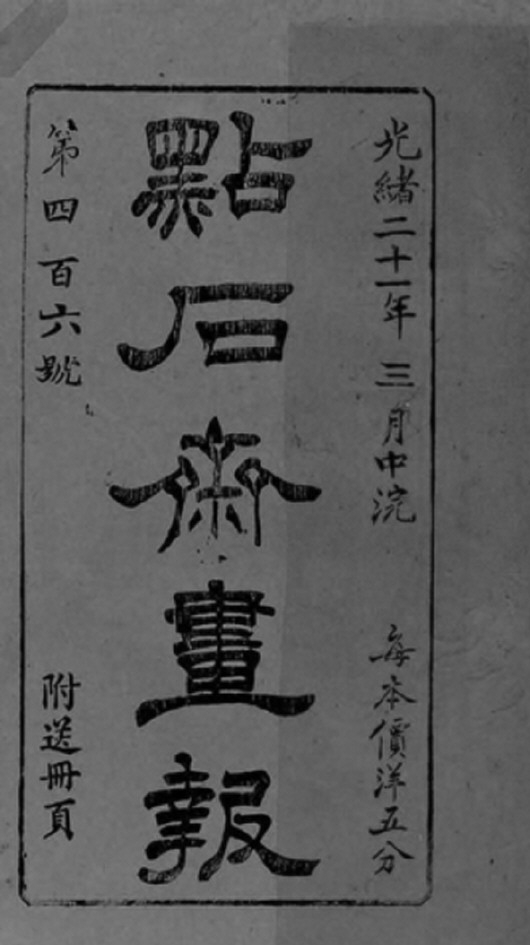 光緒二十一年三月中浣
每本價洋五分
點石齋畫報
第四百六號
附送冊頁